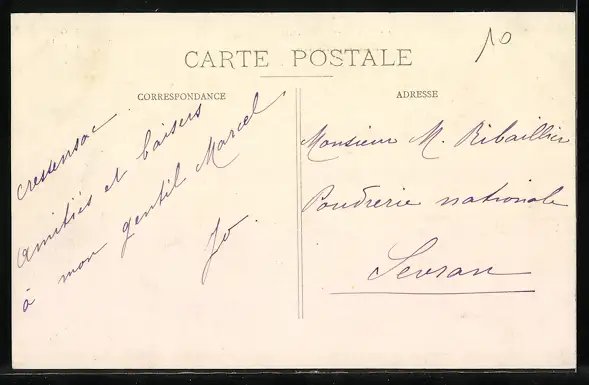 10
CARTE POSTALE
CORRESPONDANCE
cressensac
Amitiés et baisers
à mon gentil Marcel
Jo.
ADRESSE
Monsieur M. Ribaillier
Poudrerie nationale
Sevran